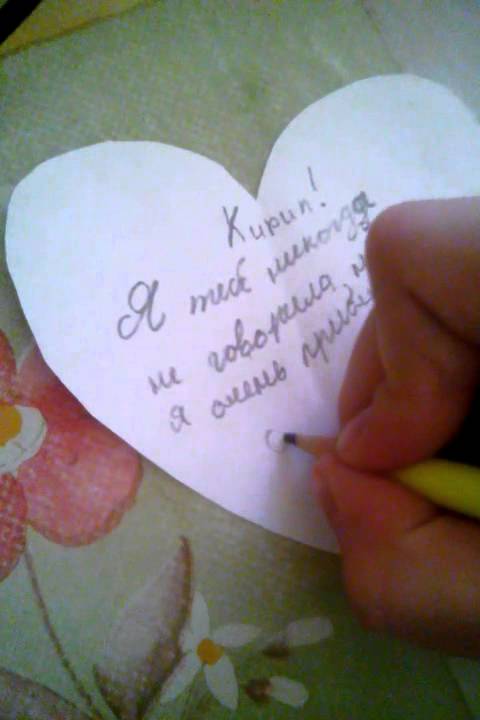 Кирил!
Я тебе никогда
не говорила
я очень